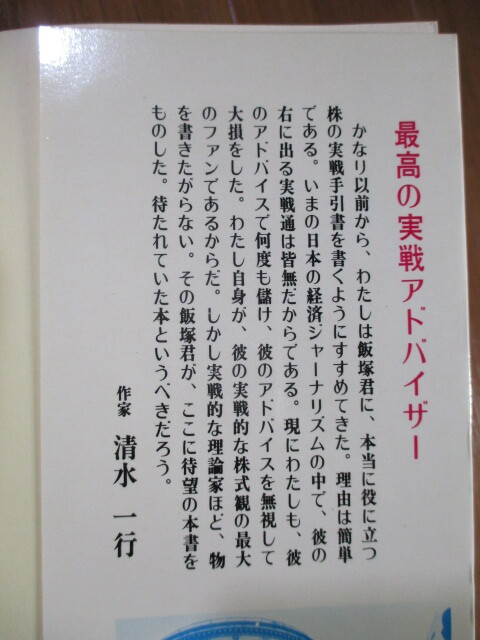 最高の実戦アドバイザー
かなり以前から、わたしは飯塚君に、本当に役に立つ
株の実戦手引書を書くようにすすめてきた。理由は簡単
である。いまの日本の経済ジャーナリズムの中で、彼の
右に出る実戦通は皆無だからである。現にわたしも、彼
のアドバイスで何度も儲け、彼のアドバイスを無視して
大損をした。わたし自身が、彼の実戦的な株式観の最大
のファンであるからだ。しかし実戦的な理論家ほど、物
を書きたがらない。その飯塚君が、ここに待望の本書を
ものした。待たれていた本というべきだろう。
作家 清水一行